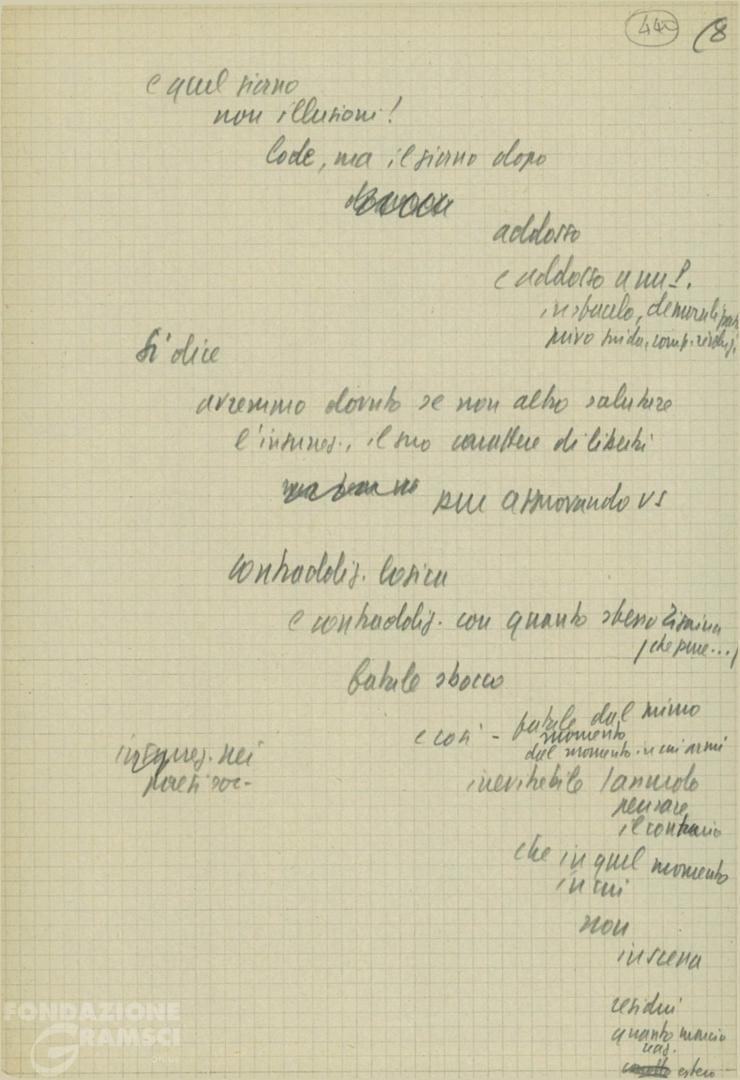 440 (8
e quel giorno
non illusioni!
lode, ma il giorno dopo
addosso
e addosso a noi!
in sbaraglio, demoralizzaz.
si dice
avremmo dovuto se non altro salutare
l'insurrez., il suo carattere di libertà
pur approvando US
contraddiz. logica
e contraddiz. con quanto stesso
(che pure...)
fatale sbocco
e così - fatale dal primo
momento
dal momento in cui armi
insurrez. nei
paesi soc-
inevitabile / assurdo
pensare
il contrario
che in quel momento
in cui
non
in scena
residui
quanto marcio
naz.
estero
FONDAZIONE
GRAMSCI